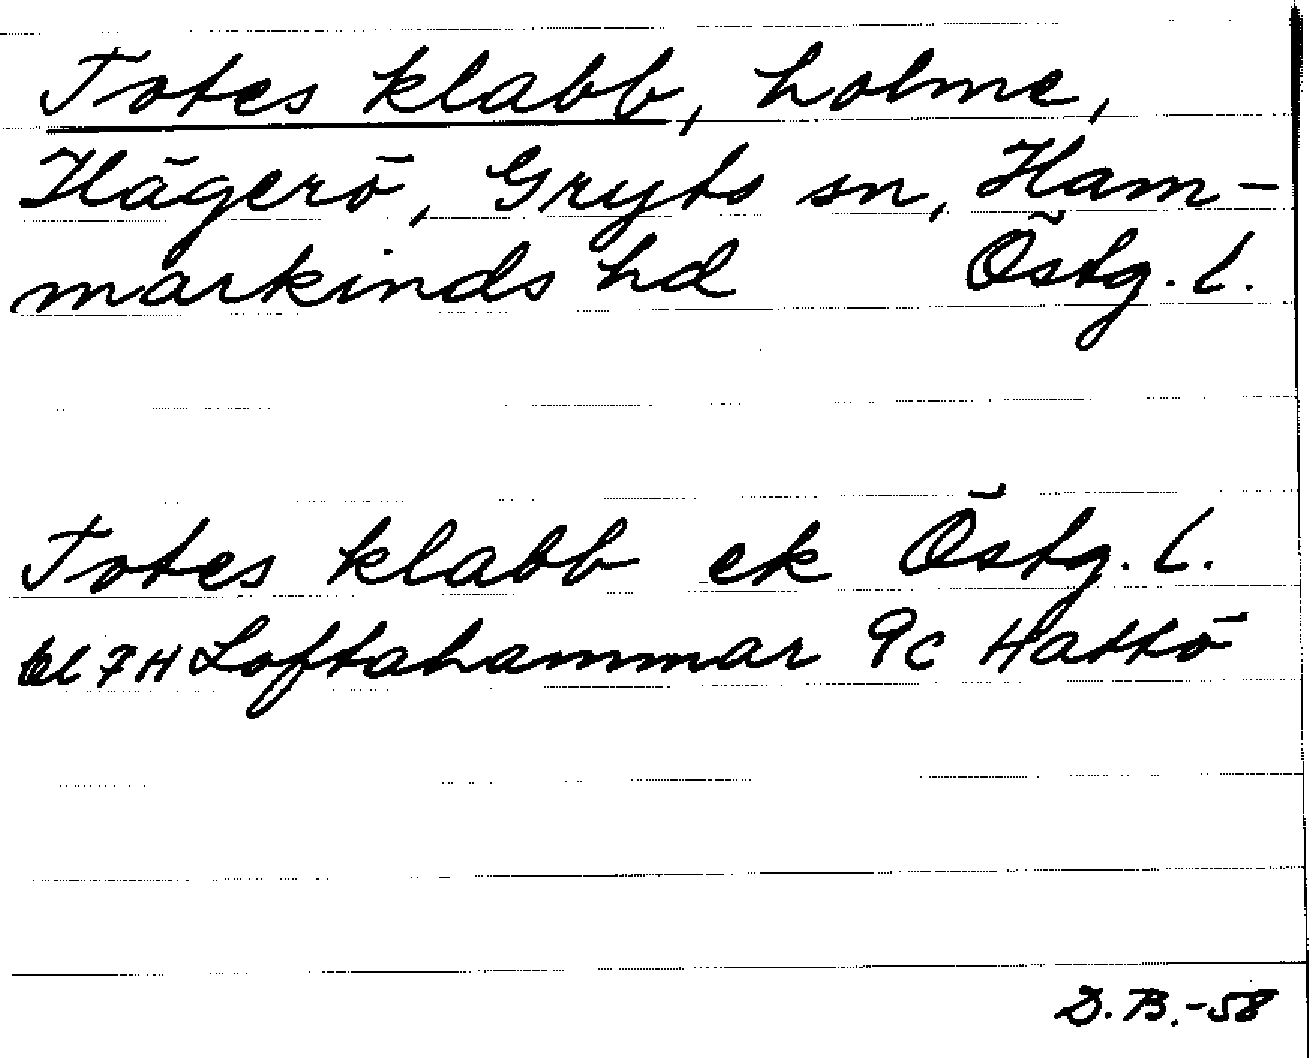 Totes klabb, holme,
Hägerö, Gryts sn, Ham-
markinds hd Östg. l.
Totes klabb ek Östg. l.
bl 7H Loftahammar 9c Hattö
D. B. -58